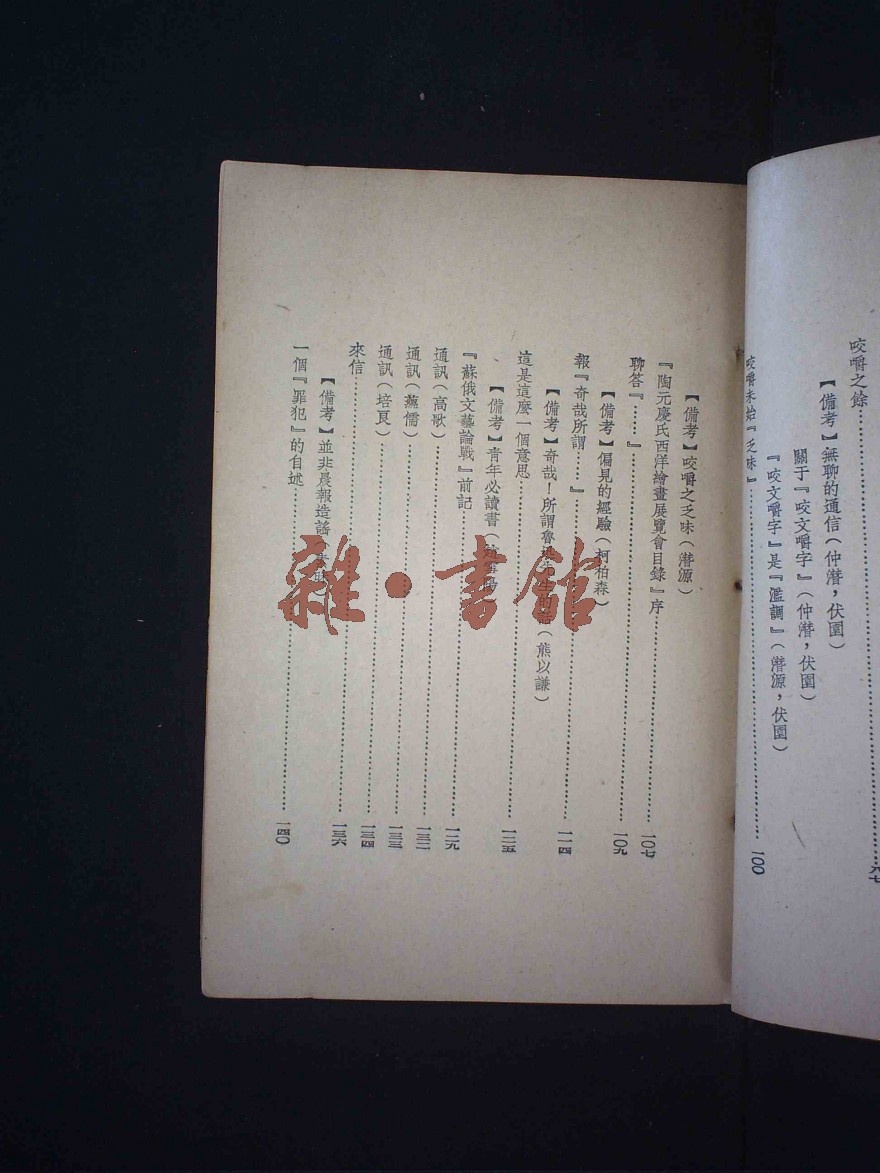 咬嚼之餘……九七
【備考】無聊的通信(仲潛,伏園)
關于『咬文嚼字』(仲潛,伏園)
『咬文嚼字』是『濫調』(潛源,伏園)
咬嚼未始『乏味』……一〇〇
【備考】咬嚼之乏味(潛源)
『陶元慶氏西洋繪畫展覽會目錄』序……一〇七
聊答『……』……一〇九
【備考】偏見的經驗(柯柏森)
報『奇哉所謂……』……一一四
【備考】奇哉!所謂魯(熊以謙)
這是這麼一個意思……一二五
【備考】青年必讀書(
『蘇俄文藝論戰』前記……一二九
通訊(高歌)……一三二
通訊(蘊儒)……一三三
通訊(培良)……一三四
來信……一三六
【備考】並非晨報造謠(
一個『罪犯』的自述……一四〇
雜·書館